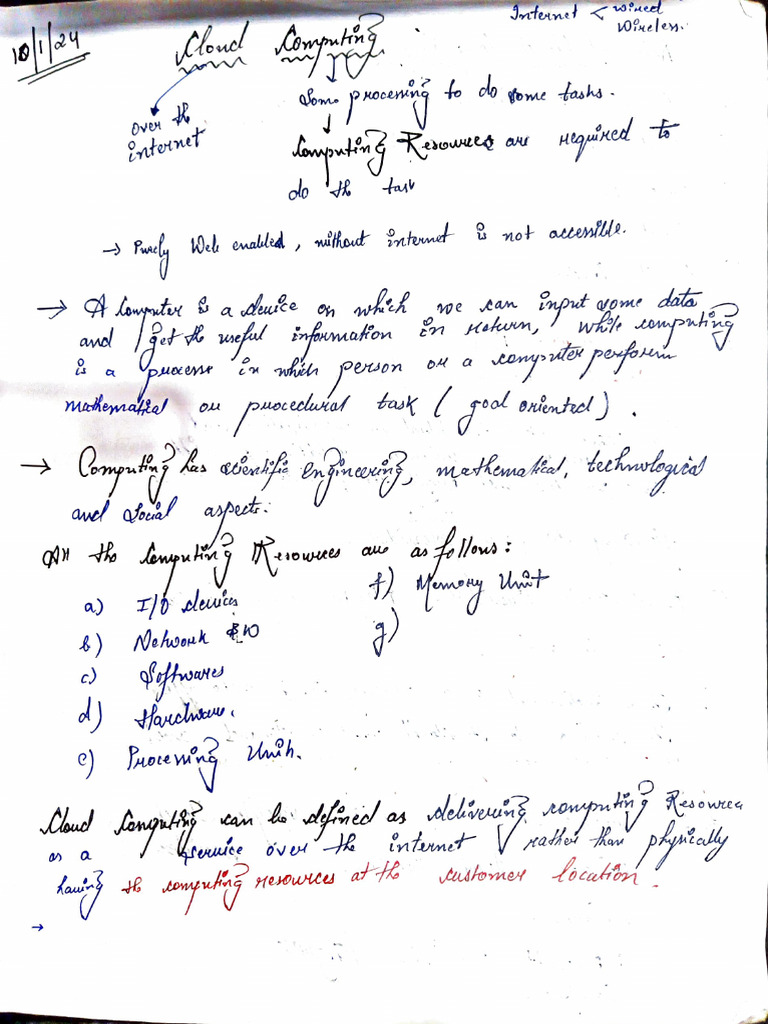 10/1/24
Cloud Computing
Internet < wired
wireless.
Over the
internet
Some processing to do some tasks.
Computing Resources are required to
do the task
→ Purely Web enabled, without internet is not accessible.
→ A Computer is a device on which we can input some data
and get the useful information in return, while computing
is a process in which person or a computer perform
mathematical or procedural task (goal oriented).
→ Computing has scientific engineering, mathematical, technological
and social aspects.
All the Computing Resources are as follows:
a) I/O devices
b) Network
c) Softwares
d) Hardware.
e) Processing Unit.
f) Memory Unit
g)
Cloud Computing can be defined as delivering computing Resources
as a service over the internet rather than physically
having the computing resources at the customer location.
→